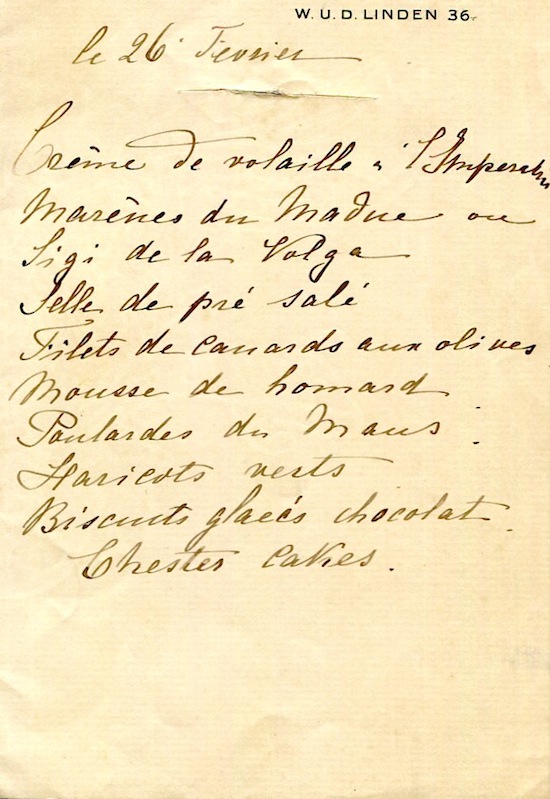 W. U. D. LINDEN 36.
le 26 Fevrier
Crème de volaille à l'Imperatrice
Marènes du Madue ou
Sigi de la Volga
Selle de pré salé
Filets de canards aux olives
Mousse de homard
Poulardes du Mans.
Haricots verts
Biscuits glacés chocolat.
Chester cakes.